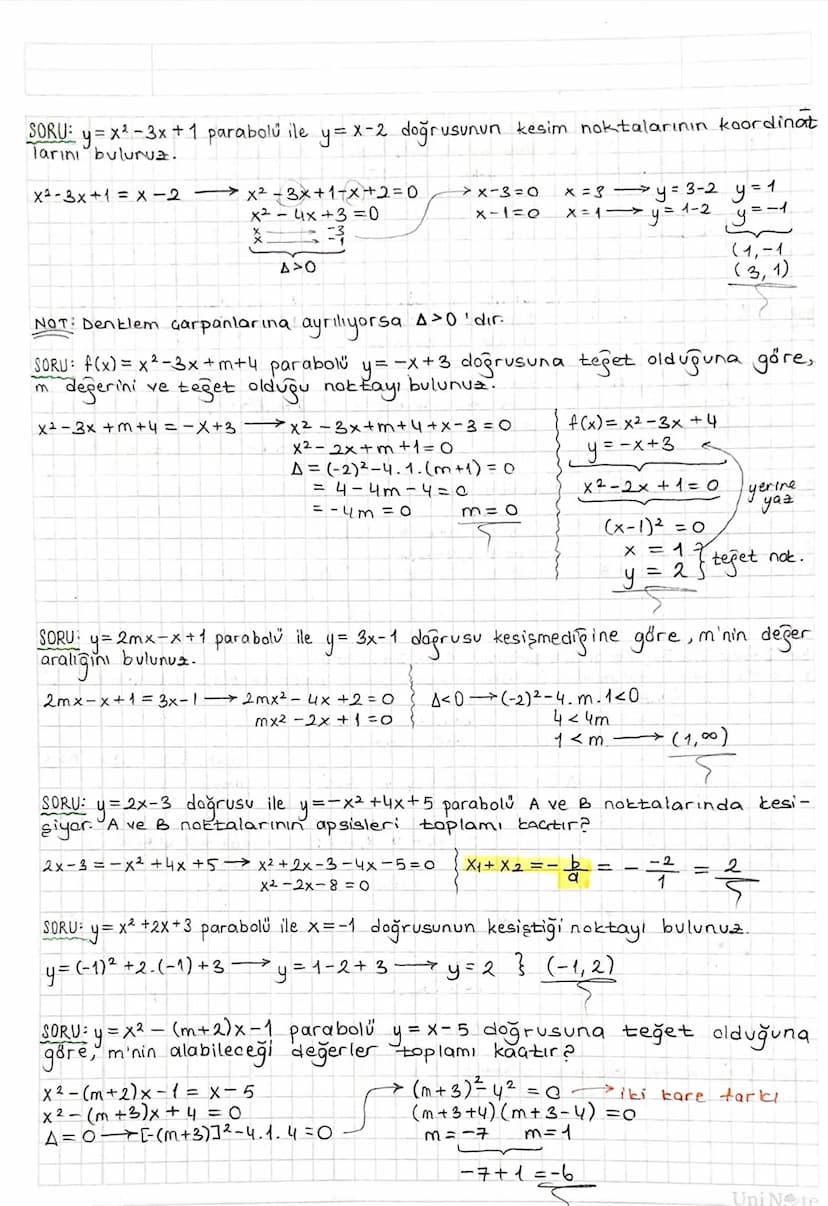 SORU: y = x² - 3x + 1 parabolü ile y = x - 2 doğrusunun kesim noktalarının koordinat
larını bulunuz.
x² - 3x + 1 = x - 2 → x² - 3x + 1 - x + 2 = 0 → x - 3 = 0 x = 3 → y = 3 - 2 y = 1
x² - 4x + 3 = 0 x - 1 = 0 x = 1 → y = 1 - 2 y = -1
x → -3
x → -1
(1, -1
Δ > 0
(3, 1)
NOT: Denklem çarpanlarına ayrılıyorsa Δ > 0 'dır.
SORU: f(x) = x² - 3x + m + 4 parabolü y = -x + 3 doğrusuna teğet olduğuna göre,
m değerini ve teğet olduğu noktayı bulunuz.
x² - 3x + m + 4 = -x + 3 → x² - 3x + m + 4 + x - 3 = 0
x² - 2x + m + 1 = 0
Δ = (-2)² - 4.1.(m + 1) = 0
= 4 - 4m - 4 = 0
= -4m = 0 m = 0
f(x) = x² - 3x + 4
y = -x + 3
x² - 2x + 1 = 0
yerine
yaz
(x - 1)² = 0
x = 1
y = 2 } teğet nok.
SORU: y = 2mx - x + 1 parabolü ile y = 3x - 1 doğrusu kesişmediğine göre, m'nin değer
aralığını bulunuz.
2mx - x + 1 = 3x - 1 → 2mx² - 4x + 2 = 0 Δ < 0 → (-2)² - 4.m.1 < 0
mx² - 2x + 1 = 0 4 < 4m
1 < m → (1, ∞)
SORU: y = 2x - 3 doğrusu ile y = -x² + 4x + 5 parabolü A ve B noktalarında kesi-
şiyor. A ve B noktalarının apsisleri toplamı kaçtır?
2x - 3 = -x² + 4x + 5 → x² + 2x - 3 - 4x - 5 = 0 x₁ + x₂ = - b/a = - -2/1 = 2
x² - 2x - 8 = 0
SORU: y = x² + 2x + 3 parabolü ile x = -1 doğrusunun kesiştiği noktayı bulunuz.
y = (-1)² + 2.(-1) + 3 → y = 1 - 2 + 3 → y = 2 } (-1, 2)
SORU: y = x² - (m + 2)x - 1 parabolü y = x - 5 doğrusuna teğet olduğuna
göre, m'nin alabileceği değerler toplamı kaçtır?
x² - (m + 2)x - 1 = x - 5
x² - (m + 3)x + 4 = 0
Δ = 0 → [-(m + 3)]² - 4.1.4 = 0
→ (m + 3)² - 4² = 0 → iki kare farkı
(m + 3 + 4)(m + 3 - 4) = 0
m = -7 m = 1
-7 + 1 = -6
UniNote